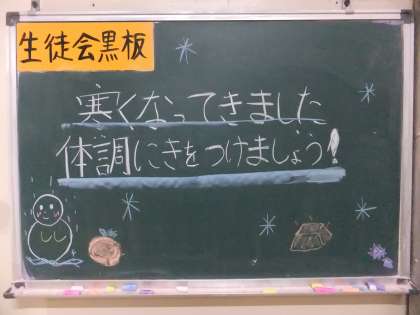 生徒会黒板
寒くなってきました
体調にきをつけましょう!